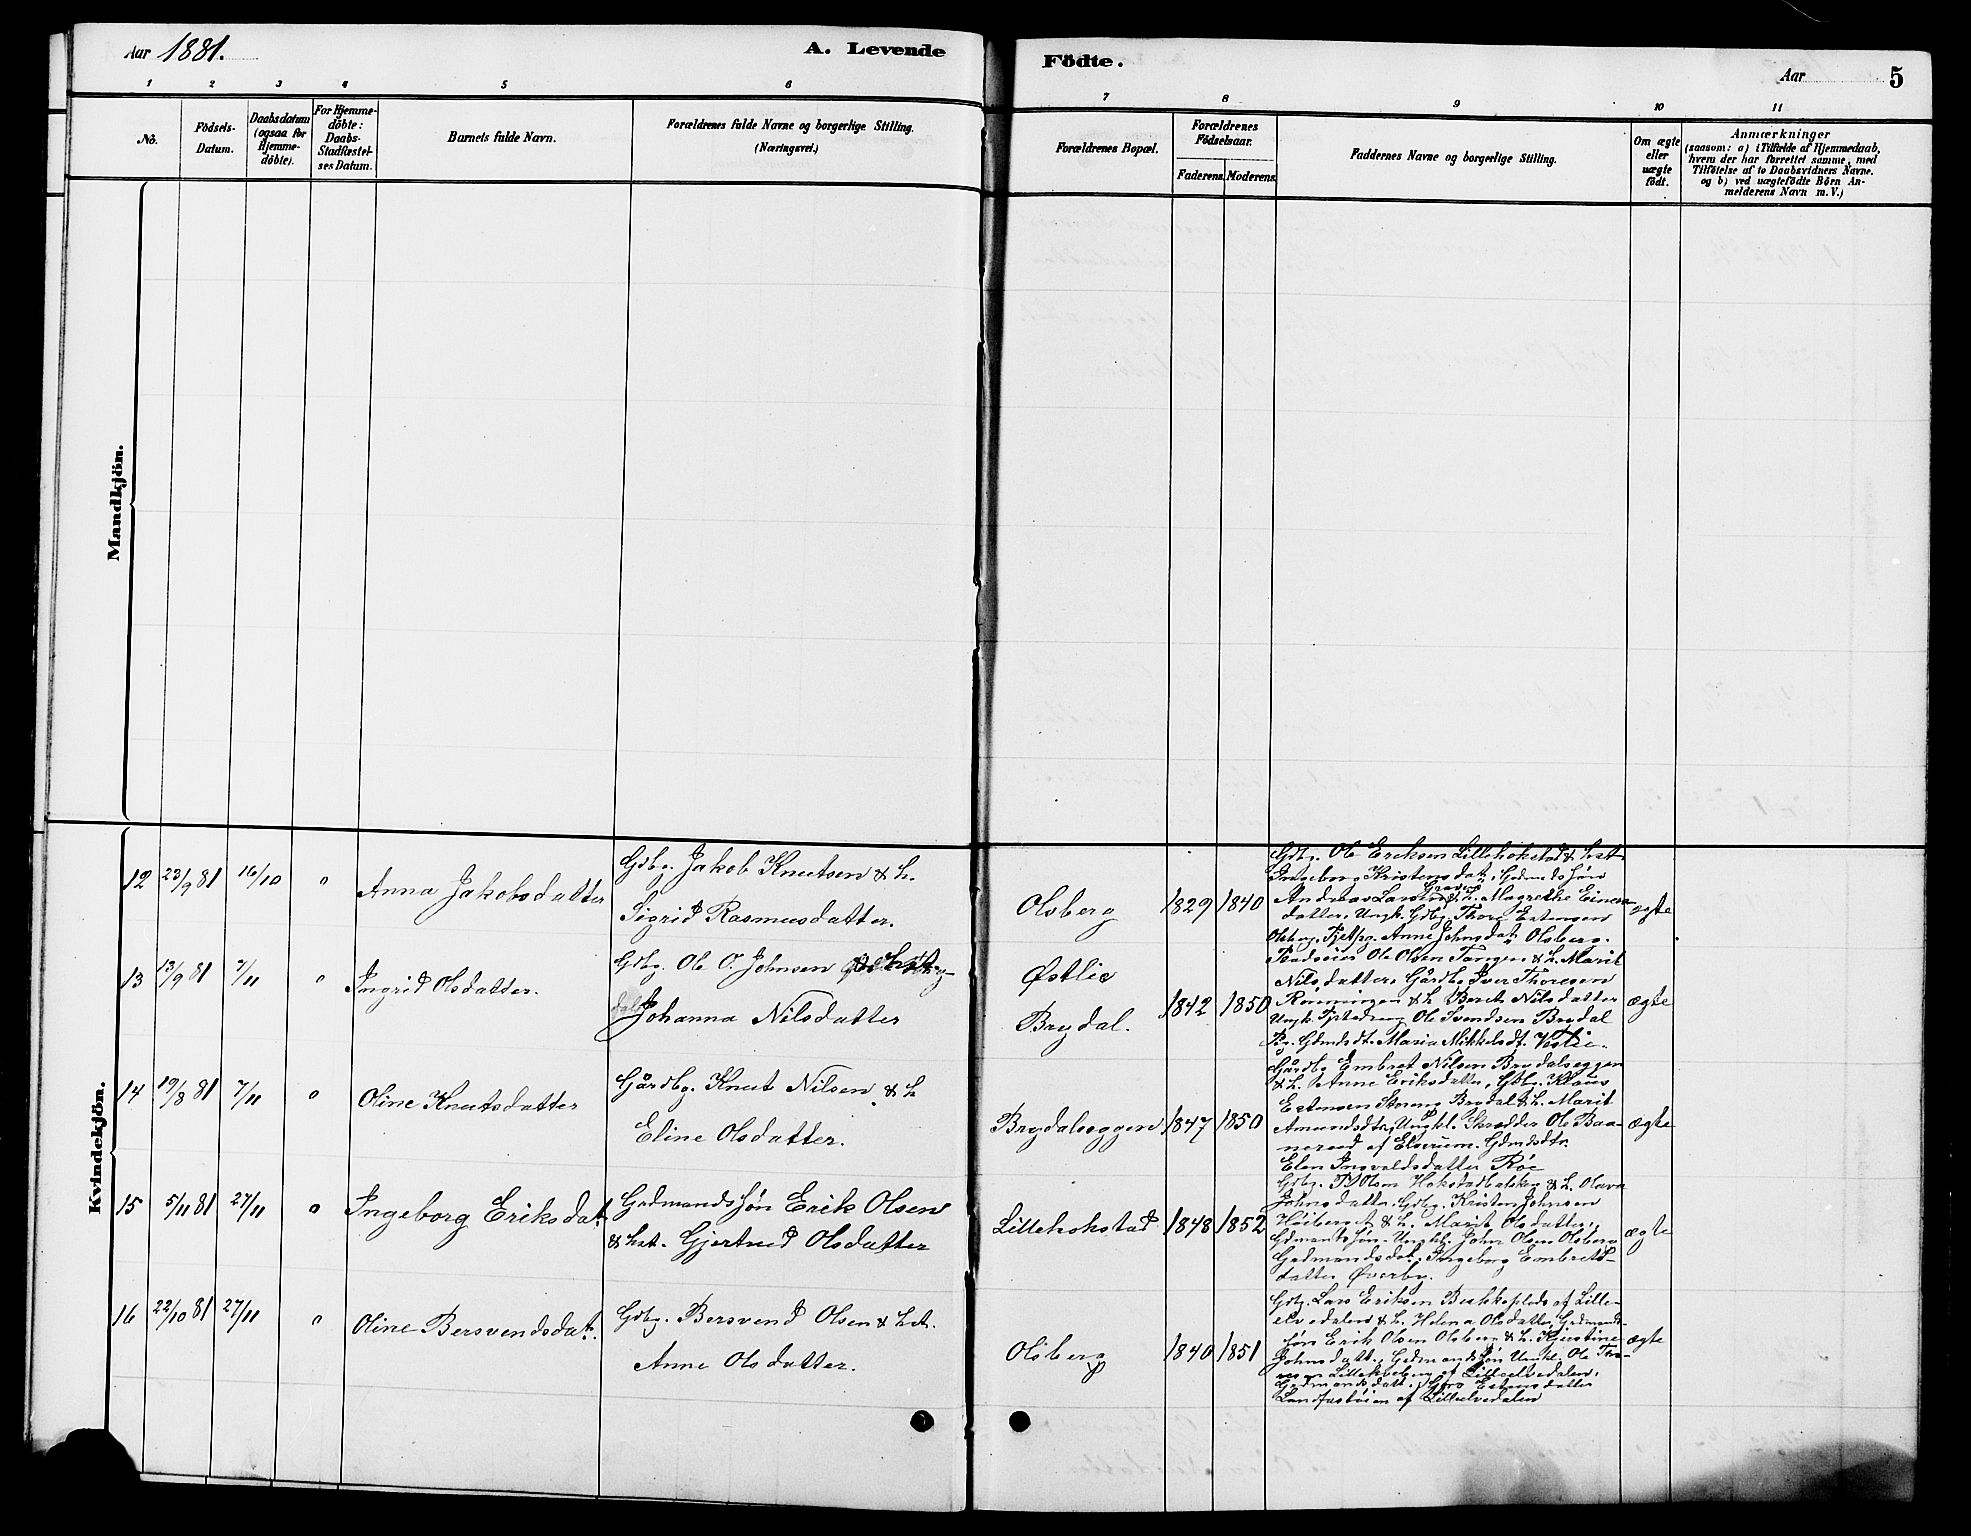 Aar 1881.
A. Levende
Födte.
Aar
5
1 2 3 4 5 6
7 8 9 10 11
No.
Födsels-
Datum.
Daabsdatum
(ogsaa for
Hjemme-
döbte).
For Hjemme-
döbte:
Daabs-
Stadfæstel-
ses Datum.
Barnets fulde Navn.
Forældrenes fulde Navne og borgerlige Stilling.
(Næringsvei.)
Forældrenes Bopæl.
Forældrenes
Födselsaar.
Faderens. Moderens.
Faddernes Navne og borgerlige Stilling.
Om ægte
eller
uægte
födt.
Anmærkninger
(saasom: a) i Tilfælde af Hjemmedaab,
hvem der har forrettet samme, med
Tilföielse af to Daabsvidners Navne.
og b) ved uægtefödte Börn An-
melderens Navn m. V.)
Mandkjön.
Kvindekjön.
12 23/9 81 16/10 " Anna Jakobsdatter
Gdbg. Jakob Knutsen & h.
Sigrid Rasmusdatter.
Olsberg 1829 1840
Gdbg. Ole Eriksen Lillehokstad & hst.
Ingeborg Kristensdat., Gdmdssøn
Andreas Larsen & h. Magrethe Einers-
datter, Ungk. Gdbg. Thore Estensen
Olsberg, Anne Johnsdat. Olsberg.
ægte
13 13/9 81 7/11 " Ingrid Olsdatter.
Gdbg. Ole O. Johnsen
Johanna Nilsdatter
Østlie
Brydal.
1842 1850
Ole Olsen Tangen & h. Marit
Nilsdatter, Gårdbg. Iver Thoresen
Rønningen & h. Berit Nilsdatter
Ungk. Ole Svendsen Brydal
Pg. Gdmdsdt. Maria Mikkelsdt. Vestlie.
ægte
14 19/8 81 7/11 " Oline Knutsdatter
Gårdbg. Knut Nilsen & h
Eline Olsdatter.
Brydalseggen 1847 1850
Gårdbg. Embret Nilsen Brydalseggen
& h. Anne Eriksdatter, Gdbg. Klaus
Estensen Storeng Brydal & h. Marit
Amundsdtr, Ungkl. Skrædder Ole Baa-
nerud af Elverum. Gdmdsdtr.
Elen Ingvaldsdatter Røe
ægte
15 5/11 81 27/11 " Ingeborg Eriksdat.
Grdmandssøn Erik Olsen
& hst. Gjertrud Olsdatter
Lillehokstad 1848 1852
Gdbg. P. Olsen Hokstadbakken & h. Olava
Johnsdatter, Gdbg. Kristen Johnsen
Høiberget & h. Marit Olsdatter,
Gdmandssøn Ungkl. John Olsen Olsberg
Grdmandsdat. Ingeborg Embrets-
datter Øverby.
ægte
16 22/10 81 27/11 " Oline Bersvendsdat.
Gdbg. Bersvend Olsen & hst.
Anne Olsdatter.
Olsberg 1840 1851
Gdbg. Lars Eriksen af Lille-
elvedalen & h. Helena Olsdatter, Grdmands-
søn Erik Olsen Olsberg & h. Kjerstine
Johnsdatt., Grdmandssøn Ungkl. Ole Tho-
resen af Lilleelvedalen,
Grdmandsdatt. Estensdatter
af Lilleelvedalen
ægte